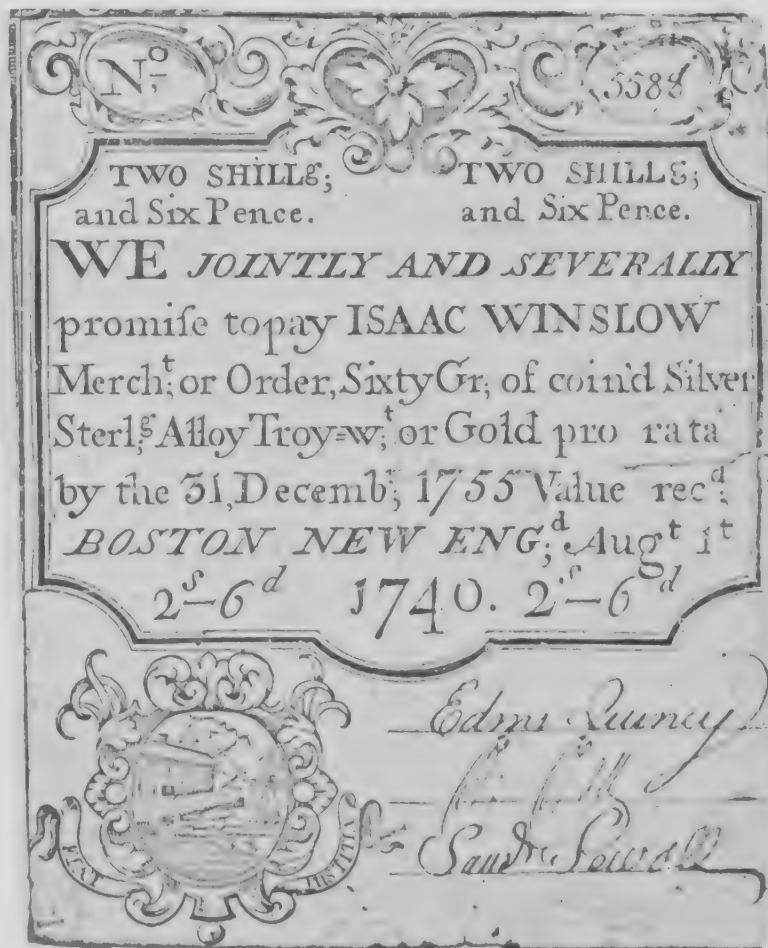 No. 5588
TWO SHILLs; TWO SHILLs;
and Six Pence. and Six Pence.
WE JOINTLY AND SEVERALLY
promiſe to pay ISAAC WINSLOW
Mercht; or Order, Sixty Gr; of coin'd Silver
Sterl;g Alloy Troy=w;t or Gold pro rata
by the 31, Decemb;r 1755 Value recd;
BOSTON NEW ENG;d Augt 1t
2s–6d 1740. 2s–6d
Edm Quincy
Saml Sewall
FIAT JUSTITIA